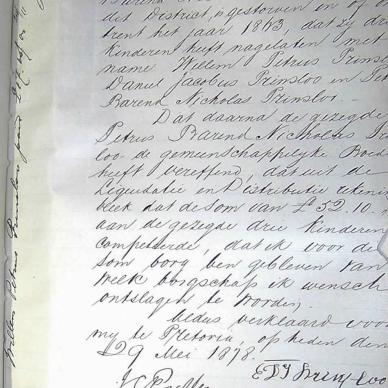 dit District, is gestorven in of o
trent het jaar 1873, dat zij d
Kinderen heeft nagelaten met
name Willem Petrus Prinsl
Daniel Jacobus Prinsloo en Pe
Barend Nicholas Prinsloo.
Dat daarna de gezegde
Petrus Barend Nicholas
loo de gemeenschappelyke Boed
heeft vereffend, dat uit de
Liquidatie en Distributie
bleek dat de som van £52.10.
aan de gezegde drie kinderen
competeerde, dat ik voor de
som borg ben gebleven van
welk borgschap ik wensch
ontslagen te worden.
Aldus verklaard voor
my te Pretoria, op heden den
29 Mei 1878.
Willem Petrus Prinsloo